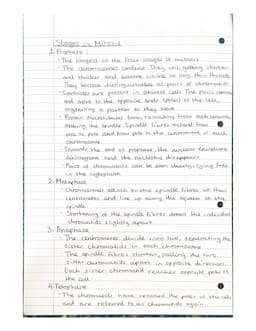 Stages in Mitosis
1. Prophase :
· The longest of the four stages of mitosis
· The chromosomes condense. They coil, getting shorter
and thicker and become visible as long thin threads.
They become distinguishable as pairs of chromatids.
· Centrioles are present in animal cells. The pairs
and move to the opposite ends (poles) of the cell,
a partner as they move.
· Protein microtubules form, from each centriole,
making the spindle. Spindle fibres extend from
pole to pole and from pole to the centromere of each
chromosome.
· Towards the end of prophase, the nuclear envelope
disintegrates and the nucleolus disappears
· Pairs of chromatids can be seen clearly, lying free
in the cytoplasm
2. Metaphase
· Chromosomes attach to the spindle fibres at their
centromeres and line up along the equator of the
spindle
· Shortening of the spindle fibres draws the individual
chromatids slightly apart.
3. Anaphase
· The centromeres divide into two, separating the
sister chromatids in each chromosome
· The spindle fibres shorten, pulling the two
sister chromatids apart in opposite direction.
Each sister chromatid reaches opposite poles of
the cell.
4. Telophase
· The chromatids have reached the poles of the cells
and are referred to as chromosomes again.